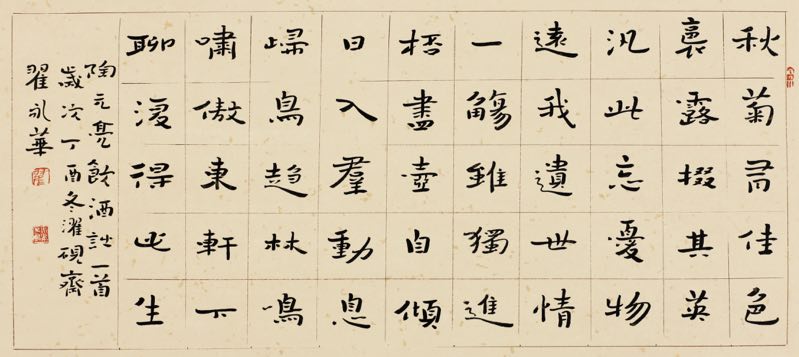 秋菊有佳色
裛露掇其英
汎此忘憂物
遠我遺世情
一觴雖獨進
桮盡壺自傾
日入羣動息
歸鳥趨林鳴
嘯傲東軒下
聊復得此生
陶元亮飲酒詩一首
歲次丁酉冬濯硯齋
翟永華